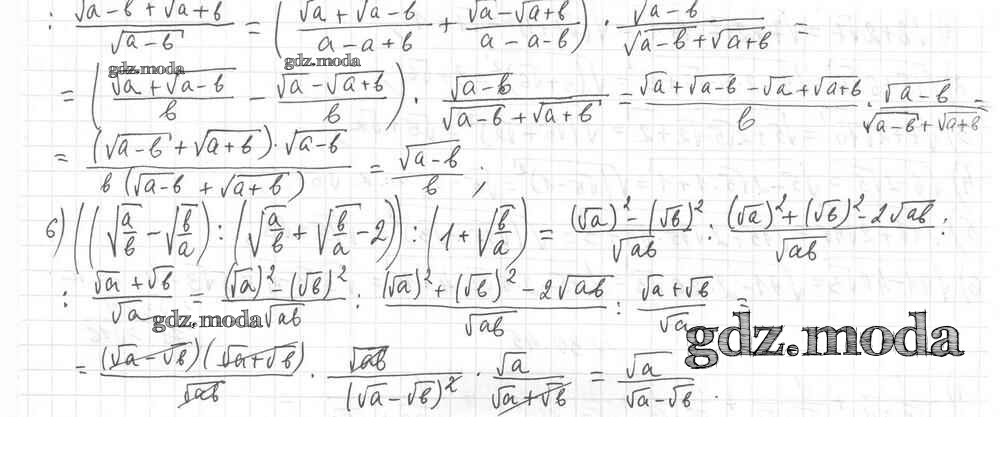 : (√(a-b) + √(a+b))/√(a-b) = ((√a + √(a-b))/(a-a+b) + (√a - √(a+b))/(a-a-b)) · √(a-b)/(√(a-b) + √(a+b)) =
gdz.moda gdz.moda
= ((√a + √(a-b))/b - (√a - √(a+b))/b) · √(a-b)/(√(a-b) + √(a+b)) = (√a + √(a-b) - √a + √(a+b))/b · √(a-b)/(√(a-b) + √(a+b)) =
= ((√(a-b) + √(a+b)) · √(a-b))/(b(√(a-b) + √(a+b))) = √(a-b)/b ;
б) ((√(a/b) - √(b/a)) : (√(a/b) + √(b/a) - 2)) : (1 + √(b/a)) = ((√a)² - (√b)²)/√(ab) : ((√a)² + (√b)² - 2√(ab))/√(ab) :
: (√a + √b)/√a = ((√a)² - (√b)²)/√(ab) : ((√a)² + (√b)² - 2√(ab))/√(ab) : (√a + √b)/√a =
gdz.moda gdz.moda
= ((√a - √b)(√a + √b))/√(ab) · √(ab)/(√a - √b)² · √a/(√a + √b) = √a/(√a - √b) .